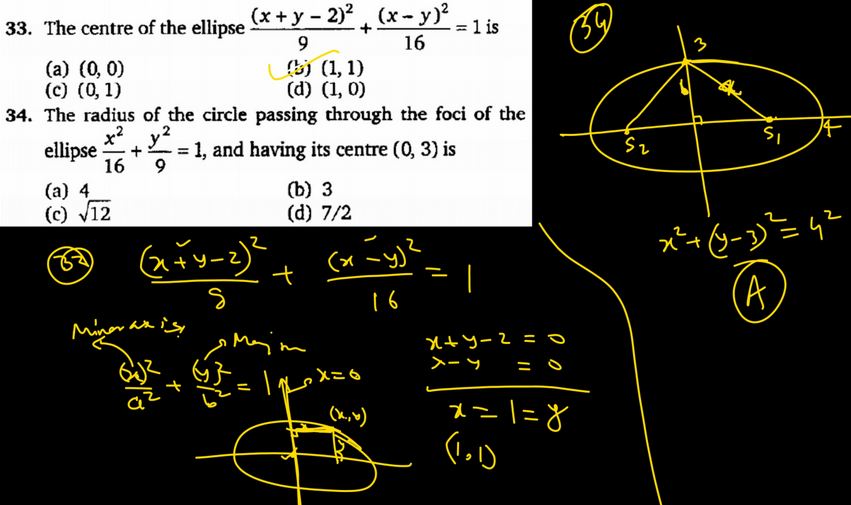 33. The centre of the ellipse (x + y − 2)²/9 + (x − y)²/16 = 1 is
(a) (0, 0) (b) (1, 1)
(c) (0, 1) (d) (1, 0)
34. The radius of the circle passing through the foci of the
ellipse x²/16 + y²/9 = 1, and having its centre (0, 3) is
(a) 4 (b) 3
(c) √12 (d) 7/2
34
3
b
S₂ S₁ 4
x² + (y−3)² = 4²
A
(x+y−2)²/9 + (x−y)²/16 = 1
Minor axis
Major
(x)²/a² + (y)²/b² = 1
x=0
x+y−2 = 0
x−y = 0
x = 1 = y
(1,1)